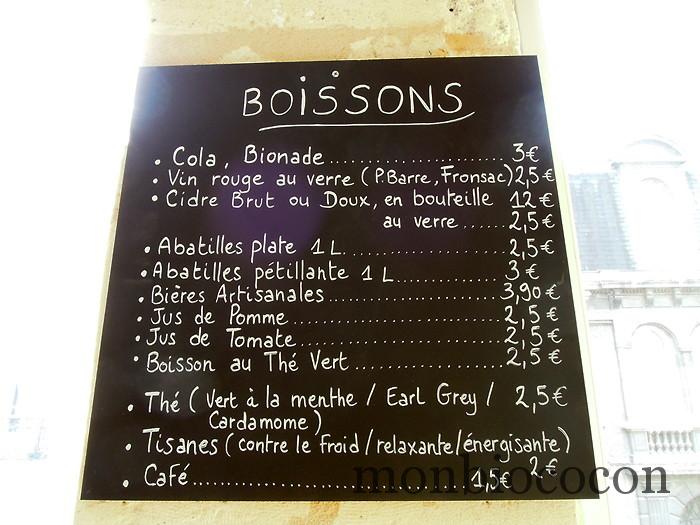 BOISSONS
• Cola, Bionade.......................... 3€
• Vin rouge au verre (P.Barre, Fronsac) 2,5€
• Cidre Brut ou Doux, en bouteille 12€
au verre...... 2,5€
• Abatilles plate 1L..................... 2,5€
• Abatilles pétillante 1L............... 3€
• Bières Artisanales.......................... 3,90€
• Jus de Pomme.............................. 2,5€
• Jus de Tomate............................. 2,5€
• Boisson au Thé Vert..................... 2,5€
• Thé (Vert à la menthe / Earl Grey / 2,5€
Cardamome)
• Tisanes (contre le froid/relaxante/énergisante)
2€
• Café.................................... 1,5€
monbiococon